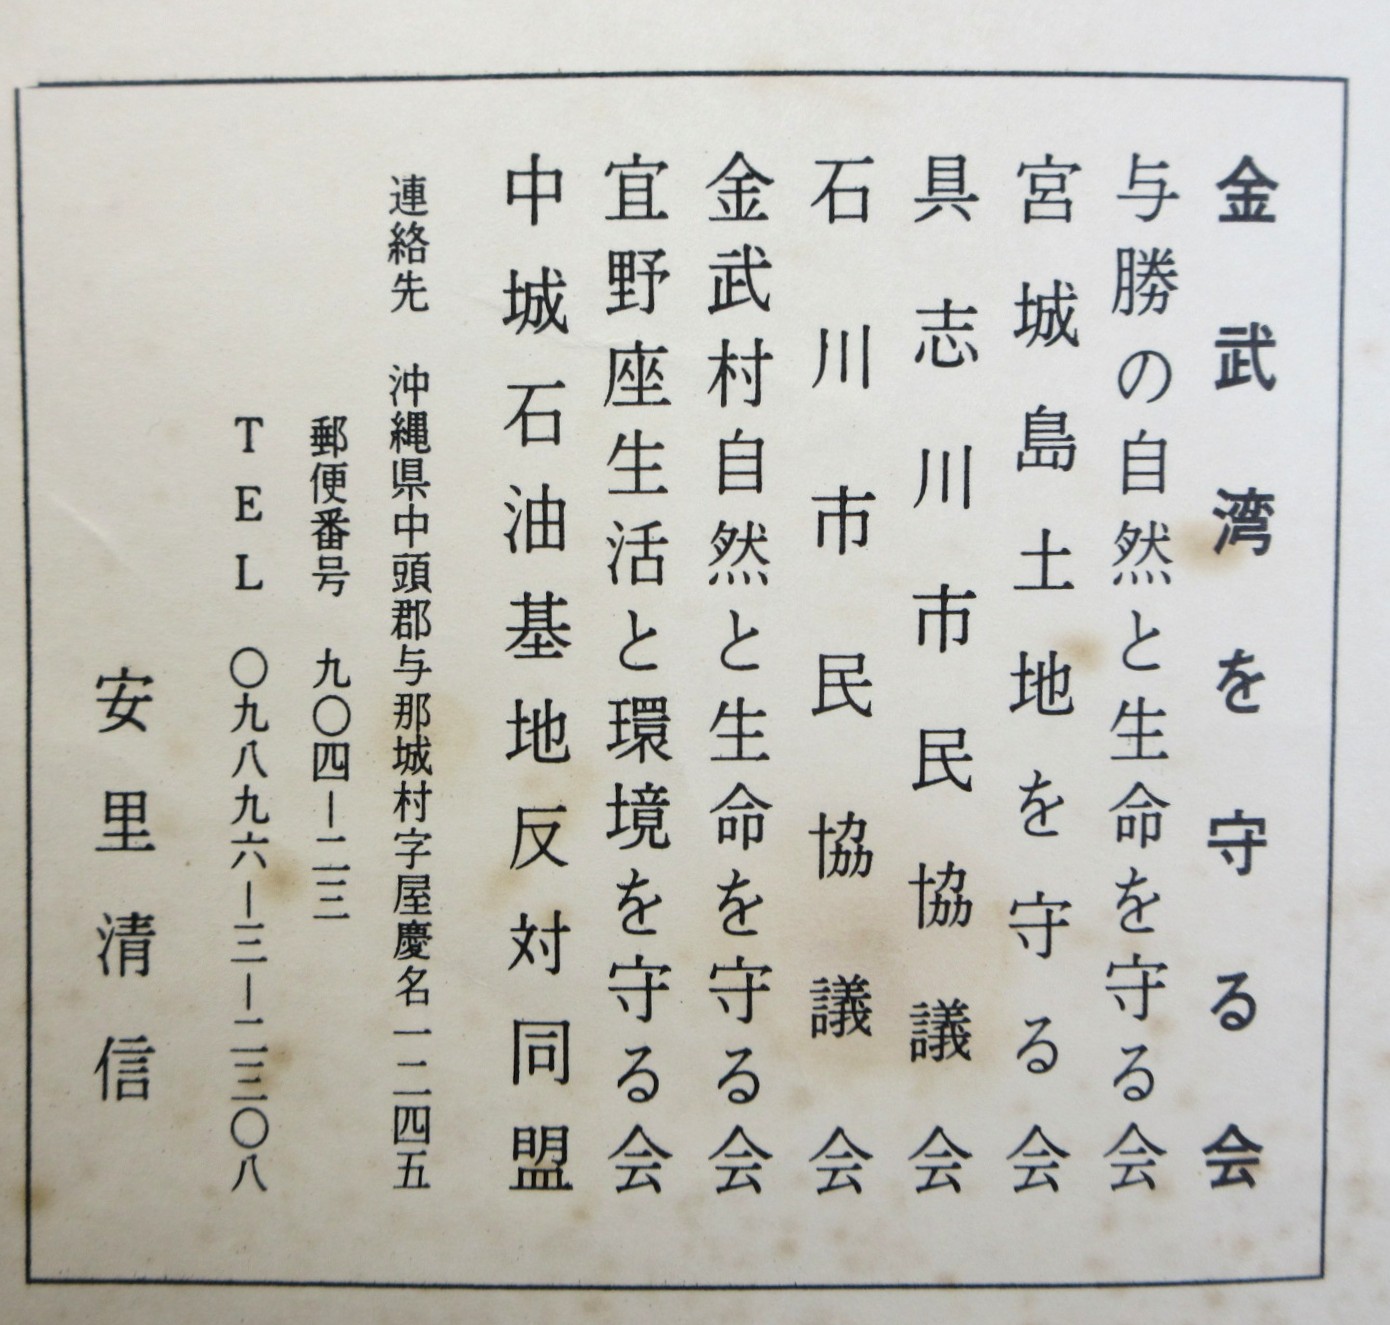 金武湾を守る会
与勝の自然と生命を守る会
宮城島土地を守る会
具志川市民協議会
石川市民協議会
金武村自然と生命を守る会
宜野座生活と環境を守る会
中城石油基地反対同盟
連絡先　沖縄県中頭郡与那城村字屋慶名一二四五
郵便番号　九〇四ー二三
TEL　〇九八九六ー三ー二三〇八
安里清信